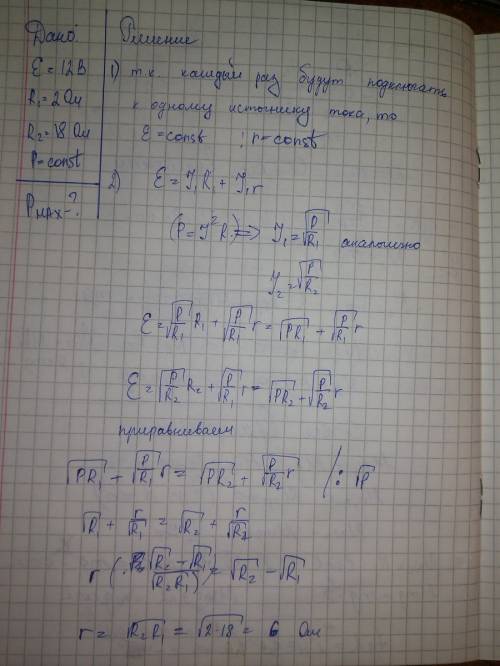 Дано:
ℰ = 12В
R₁ = 2 Ом
R₂ = 18 Ом
P = const
Pмах - ?
Решение
1) т.к. каждый раз будут подключать
к одному источнику тока, то
ℰ = const ; r = const
2) ℰ = J₁R₁ + J₁r
(P = J²R) => J₁ = √(P/R₁) аналогично
J₂ = √(P/R₂)
ℰ = √(P/R₁) R₁ + √(P/R₁) r = √(PR₁) + √(P/R₁) r
ℰ = √(P/R₂) R₂ + √(P/R₁) r = √(PR₂) + √(P/R₂) r
приравниваем
√(PR₁) + √(P/R₁) r = √(PR₂) + √(P/R₂) r /: √P
√R₁ + r/√R₁ = √R₂ + r/√R₂
r ((√R₂ - √R₁)/√(R₂R₁)) = √R₂ - √R₁
r = √(R₂R₁) = √(2·18) = 6 Ом